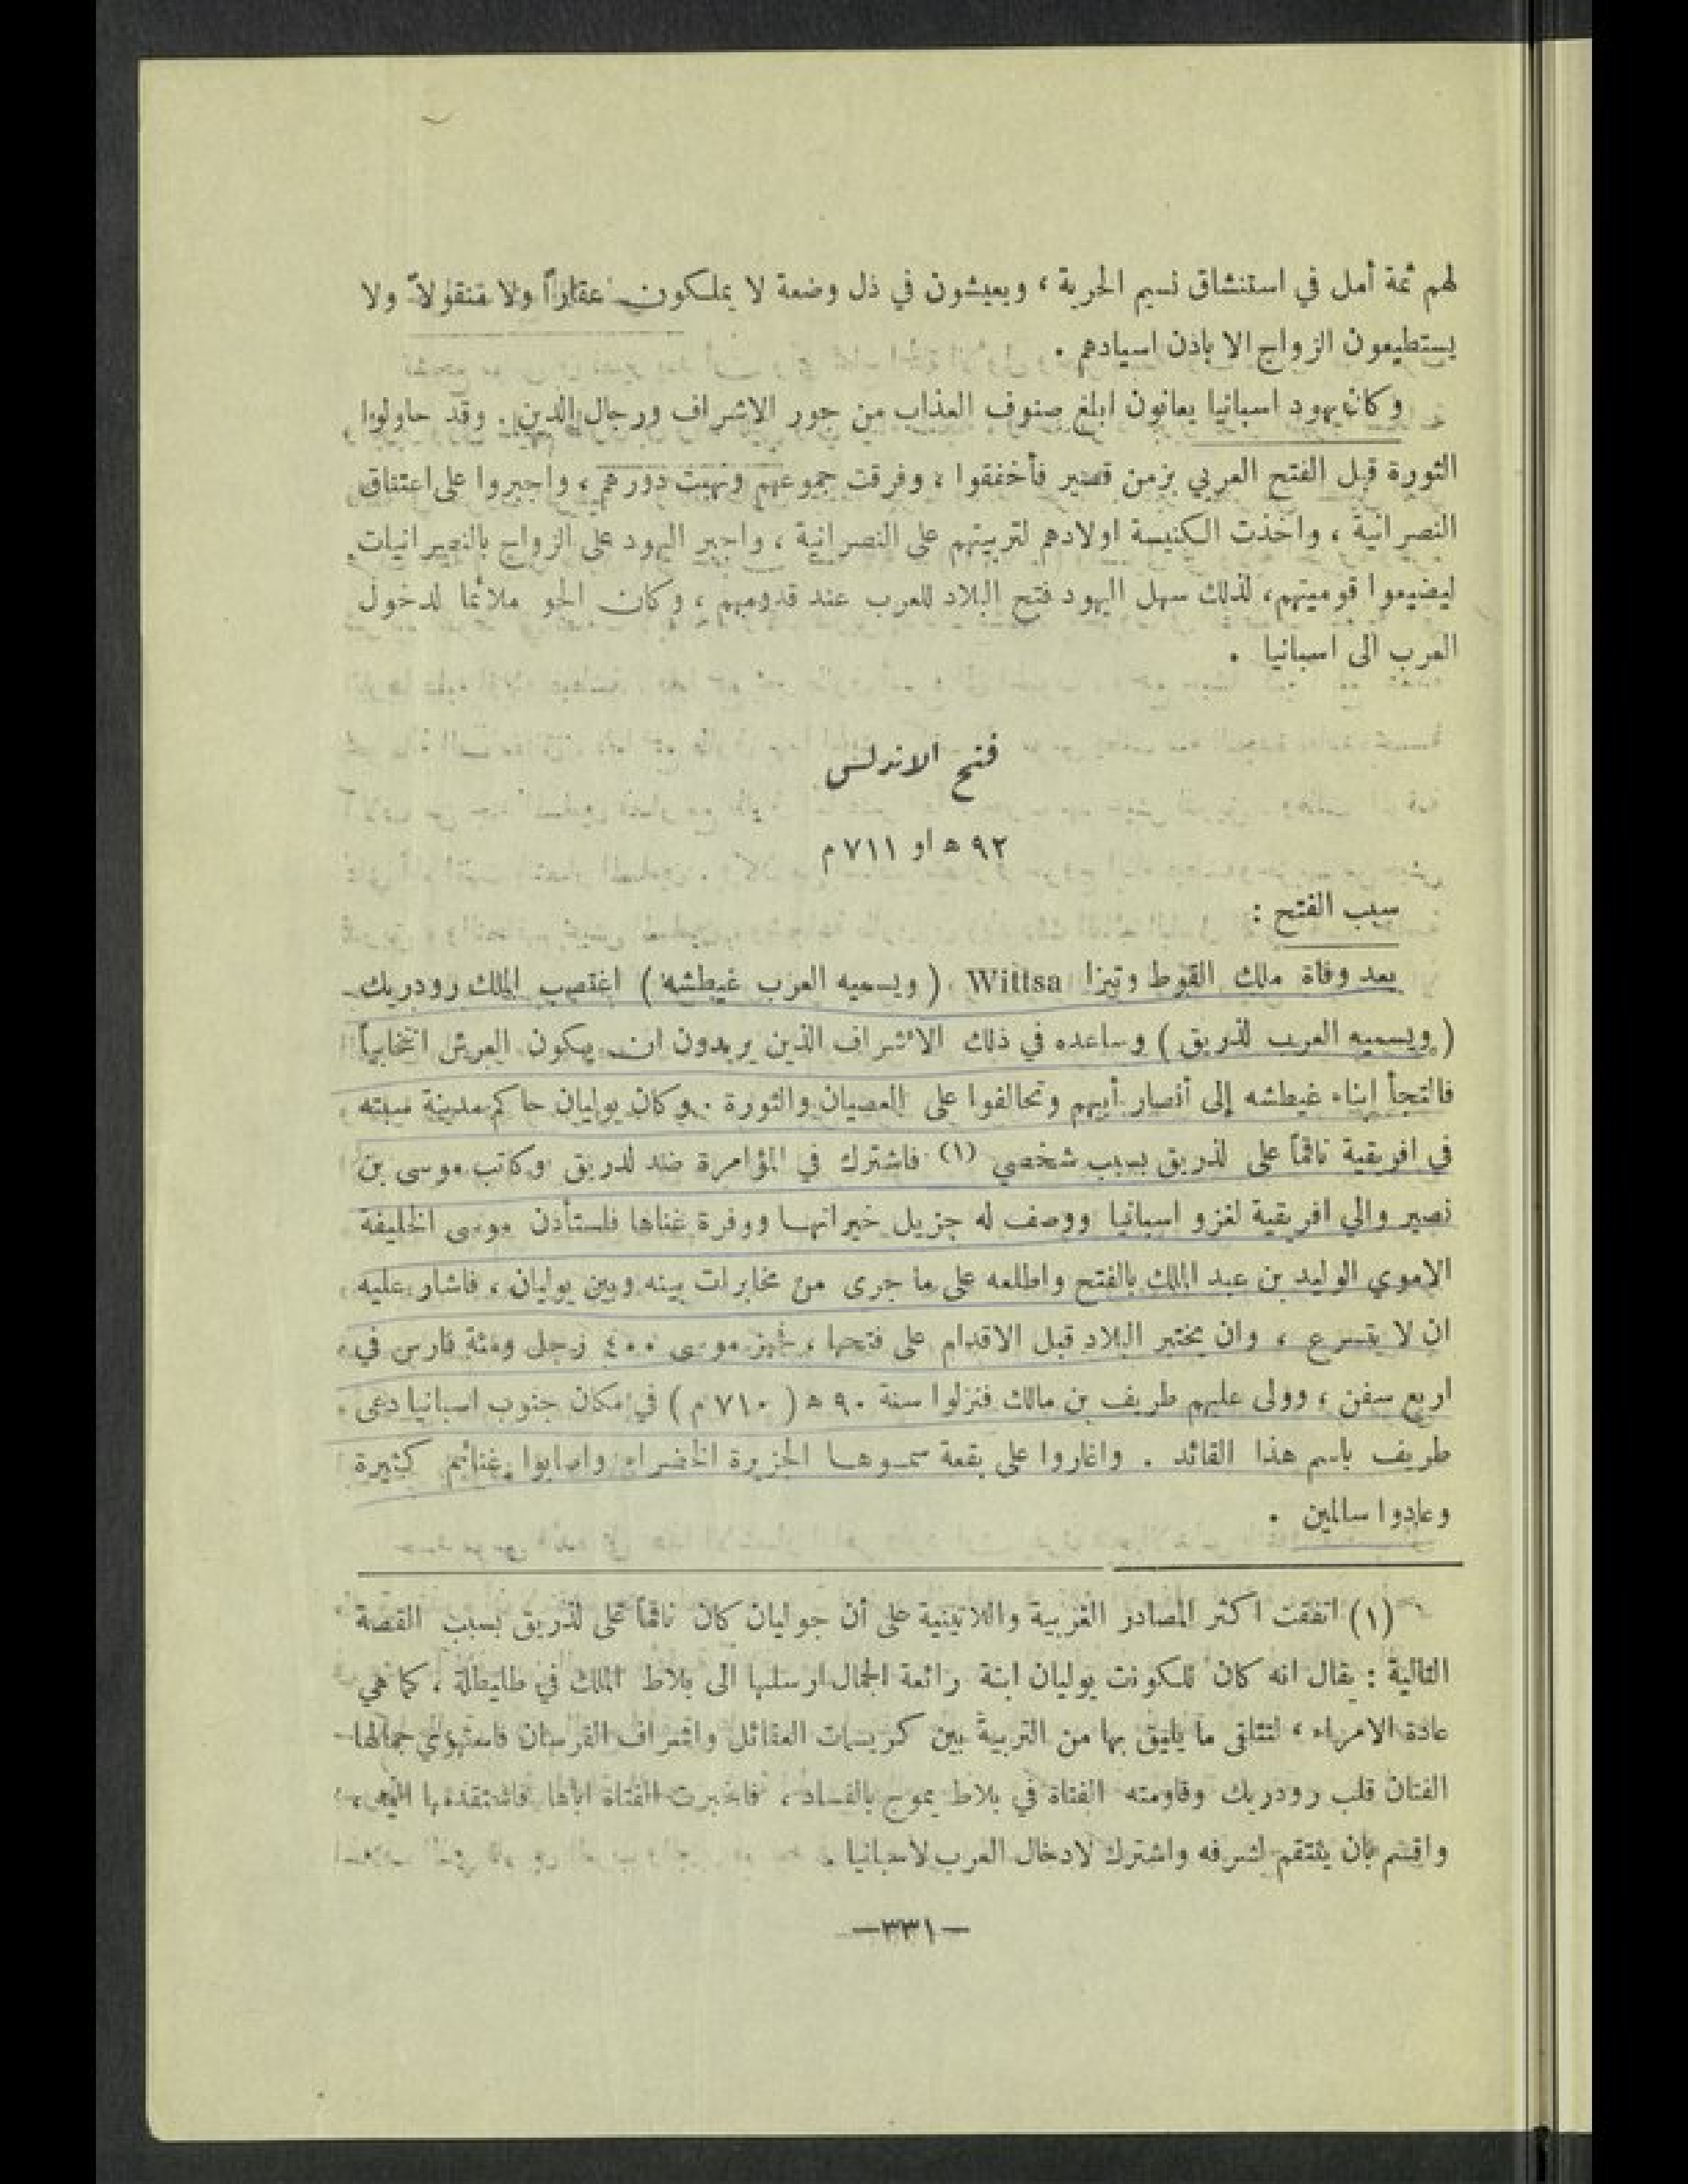 لهم ثمة أمل في استنشاق نسيم الحرية ، ويعيشون في ذل وضعة لا يملكون عقاراً ولا منقولاً ولا
يستطيعون الزواج الا باذن اسيادهم .
وكان يهود اسبانيا يعانون ابلغ صنوف العذاب من جور الاشراف ورجال الدين . وقد حاولوا
الثورة قبل الفتح العربي بزمن قصير فأخفقوا ، وفرقت جموعهم ونهبت دورهم ، واجبروا على اعتناق
النصرانية ، واخذت الكنيسة اولادهم لتربيتهم على النصرانية ، واجبر اليهود على الزواج بالنصرانيات
ليضيعوا قوميتهم، لذلك سهل اليهود فتح البلاد للعرب عند قدومهم ، وكان الجو ملائما لدخول
العرب الى اسبانيا .
فتح الاندلس
٩٢ ه او ٧١١ م
سبب الفتح :
بعد وفاة ملك القوط وتيزا Wittsa ( ويسميه العرب غيطشه ) اغتصب الملك رودريك
( ويسميه العرب لذريق ) وساعده في ذلك الاشراف الذين يريدون ان يكون العرش انتخابياً
فالتجأ ابناء غيطشه إلى أنصار أبيهم وتحالفوا على العصيان والثورة . وكان يوليان حاكم مدينة سبته
في افريقية ناقماً على لذريق بسبب شخصي (١) فاشترك في المؤامرة ضد لذريق وكاتب موسى بن
نصير والي افريقية لغزو اسبانيا ووصف له جزيل خيراتها ووفرة غناها فلستأذن موسى الخليفة
الاموي الوليد بن عبد الملك بالفتح واطلعه على ما جرى من مخابرات بينه وبين يوليان ، فاشار عليه
ان لا يتسرع ، وان يختبر البلاد قبل الاقدام على فتحها ، فجهز موسى ٤٠٠ رجل ومئة فارس في
اربع سفن ، وولى عليهم طريف بن مالك فنزلوا سنة ٩٠ ه ( ٧١٠ م ) في مكان جنوب اسبانيا دعى
طريف باسم هذا القائد . واغاروا على بقعة سموها الجزيرة الخضراء واصابوا غنائم كثيرة
وعادوا سالمين .
(١) اتفقت اكثر المصادر العربية واللاتينية على أن جوليان كان ناقماً على لذريق بسبب القصة
التالية : يقال انه كان للكونت يوليان ابنة رائعة الجمال ارسلها الى بلاط الملك في طليطلة ، كما هي
عادة الامراء ، لتتلقى ما يليق بها من التربية بين كريمات العقائل واشراف الفرسان فاستهوي جمالها
الفتان قلب رودريك وقاومته الفتاة في بلاط يموج بالفساد ، فاخبرت الفتاة اباها فاستقدمها اليه ،
واقسم بان ينتقم لشرفه واشترك لادخال العرب لاسبانيا .
—٣٣١—